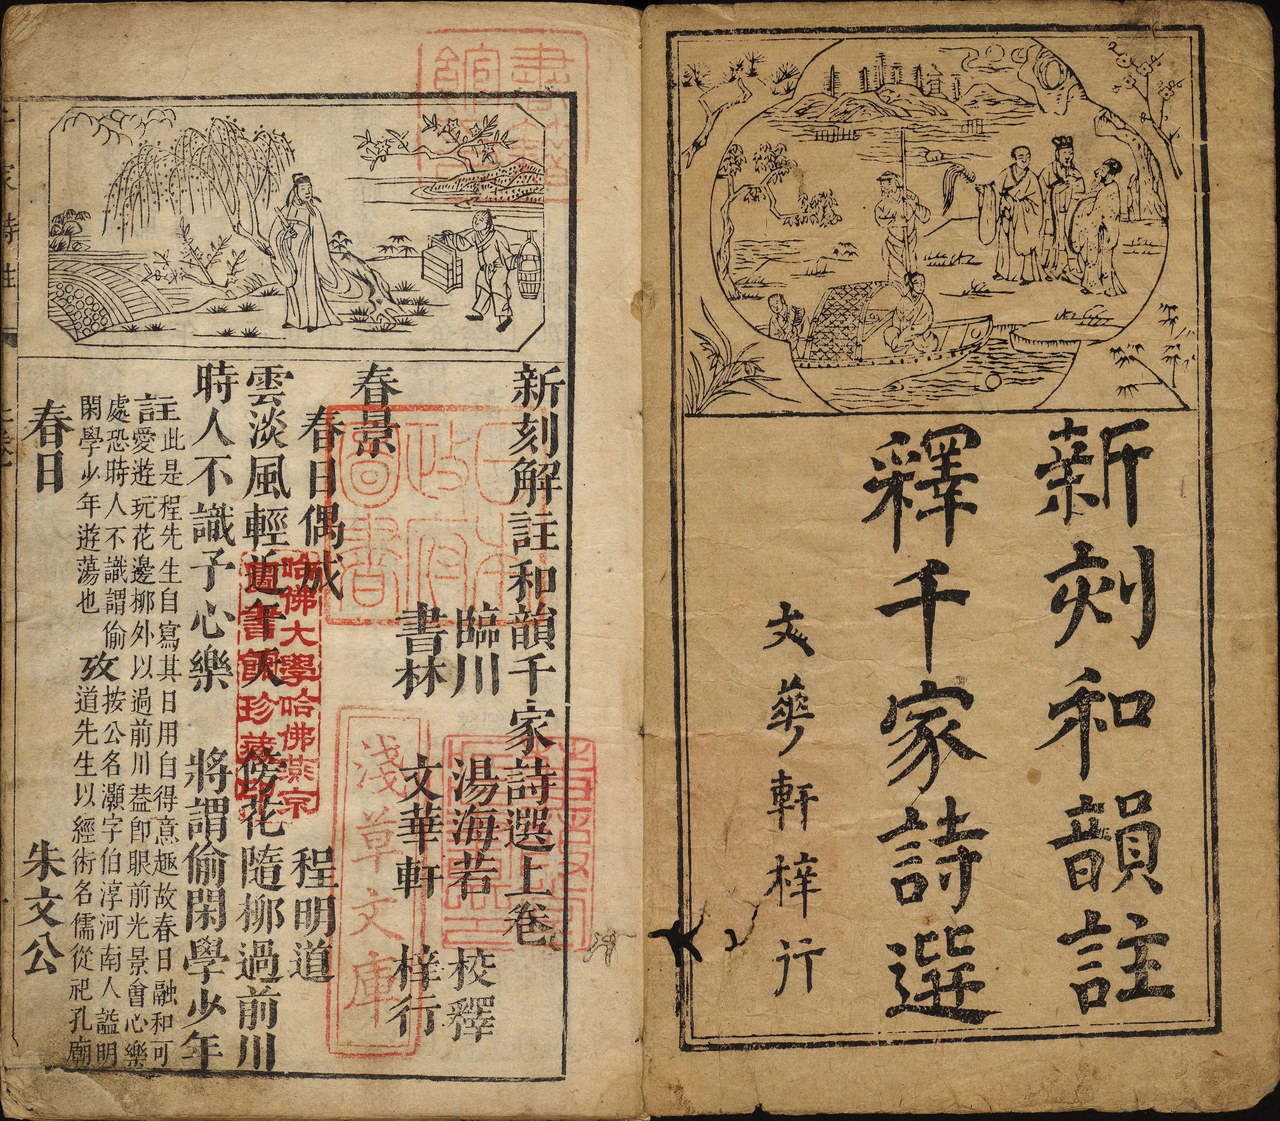 新刻和韻註
釋千家詩選
文華軒梓行
新刻解註和韻千家詩選上卷
臨川 湯海若 校釋
書林 文華軒 梓行
春景
春日偶成 程明道
雲淡風輕近午天 傍花隨柳過前川
時人不識予心樂 將謂偷閑學少年
註此是程先生自寫其日用自得意趣故春日融和可
愛遊玩花邊柳外以過前川葢卽眼前光景會心樂
處恐時人不識謂偷
閑學少年遊蕩也
攷按公名灝字伯淳河南人諡明
道先生以經術名儒從祀孔廟
春日 朱文公
日本
政府
圖書
淺草文庫
哈佛大學哈佛燕京
圖書館珍藏印